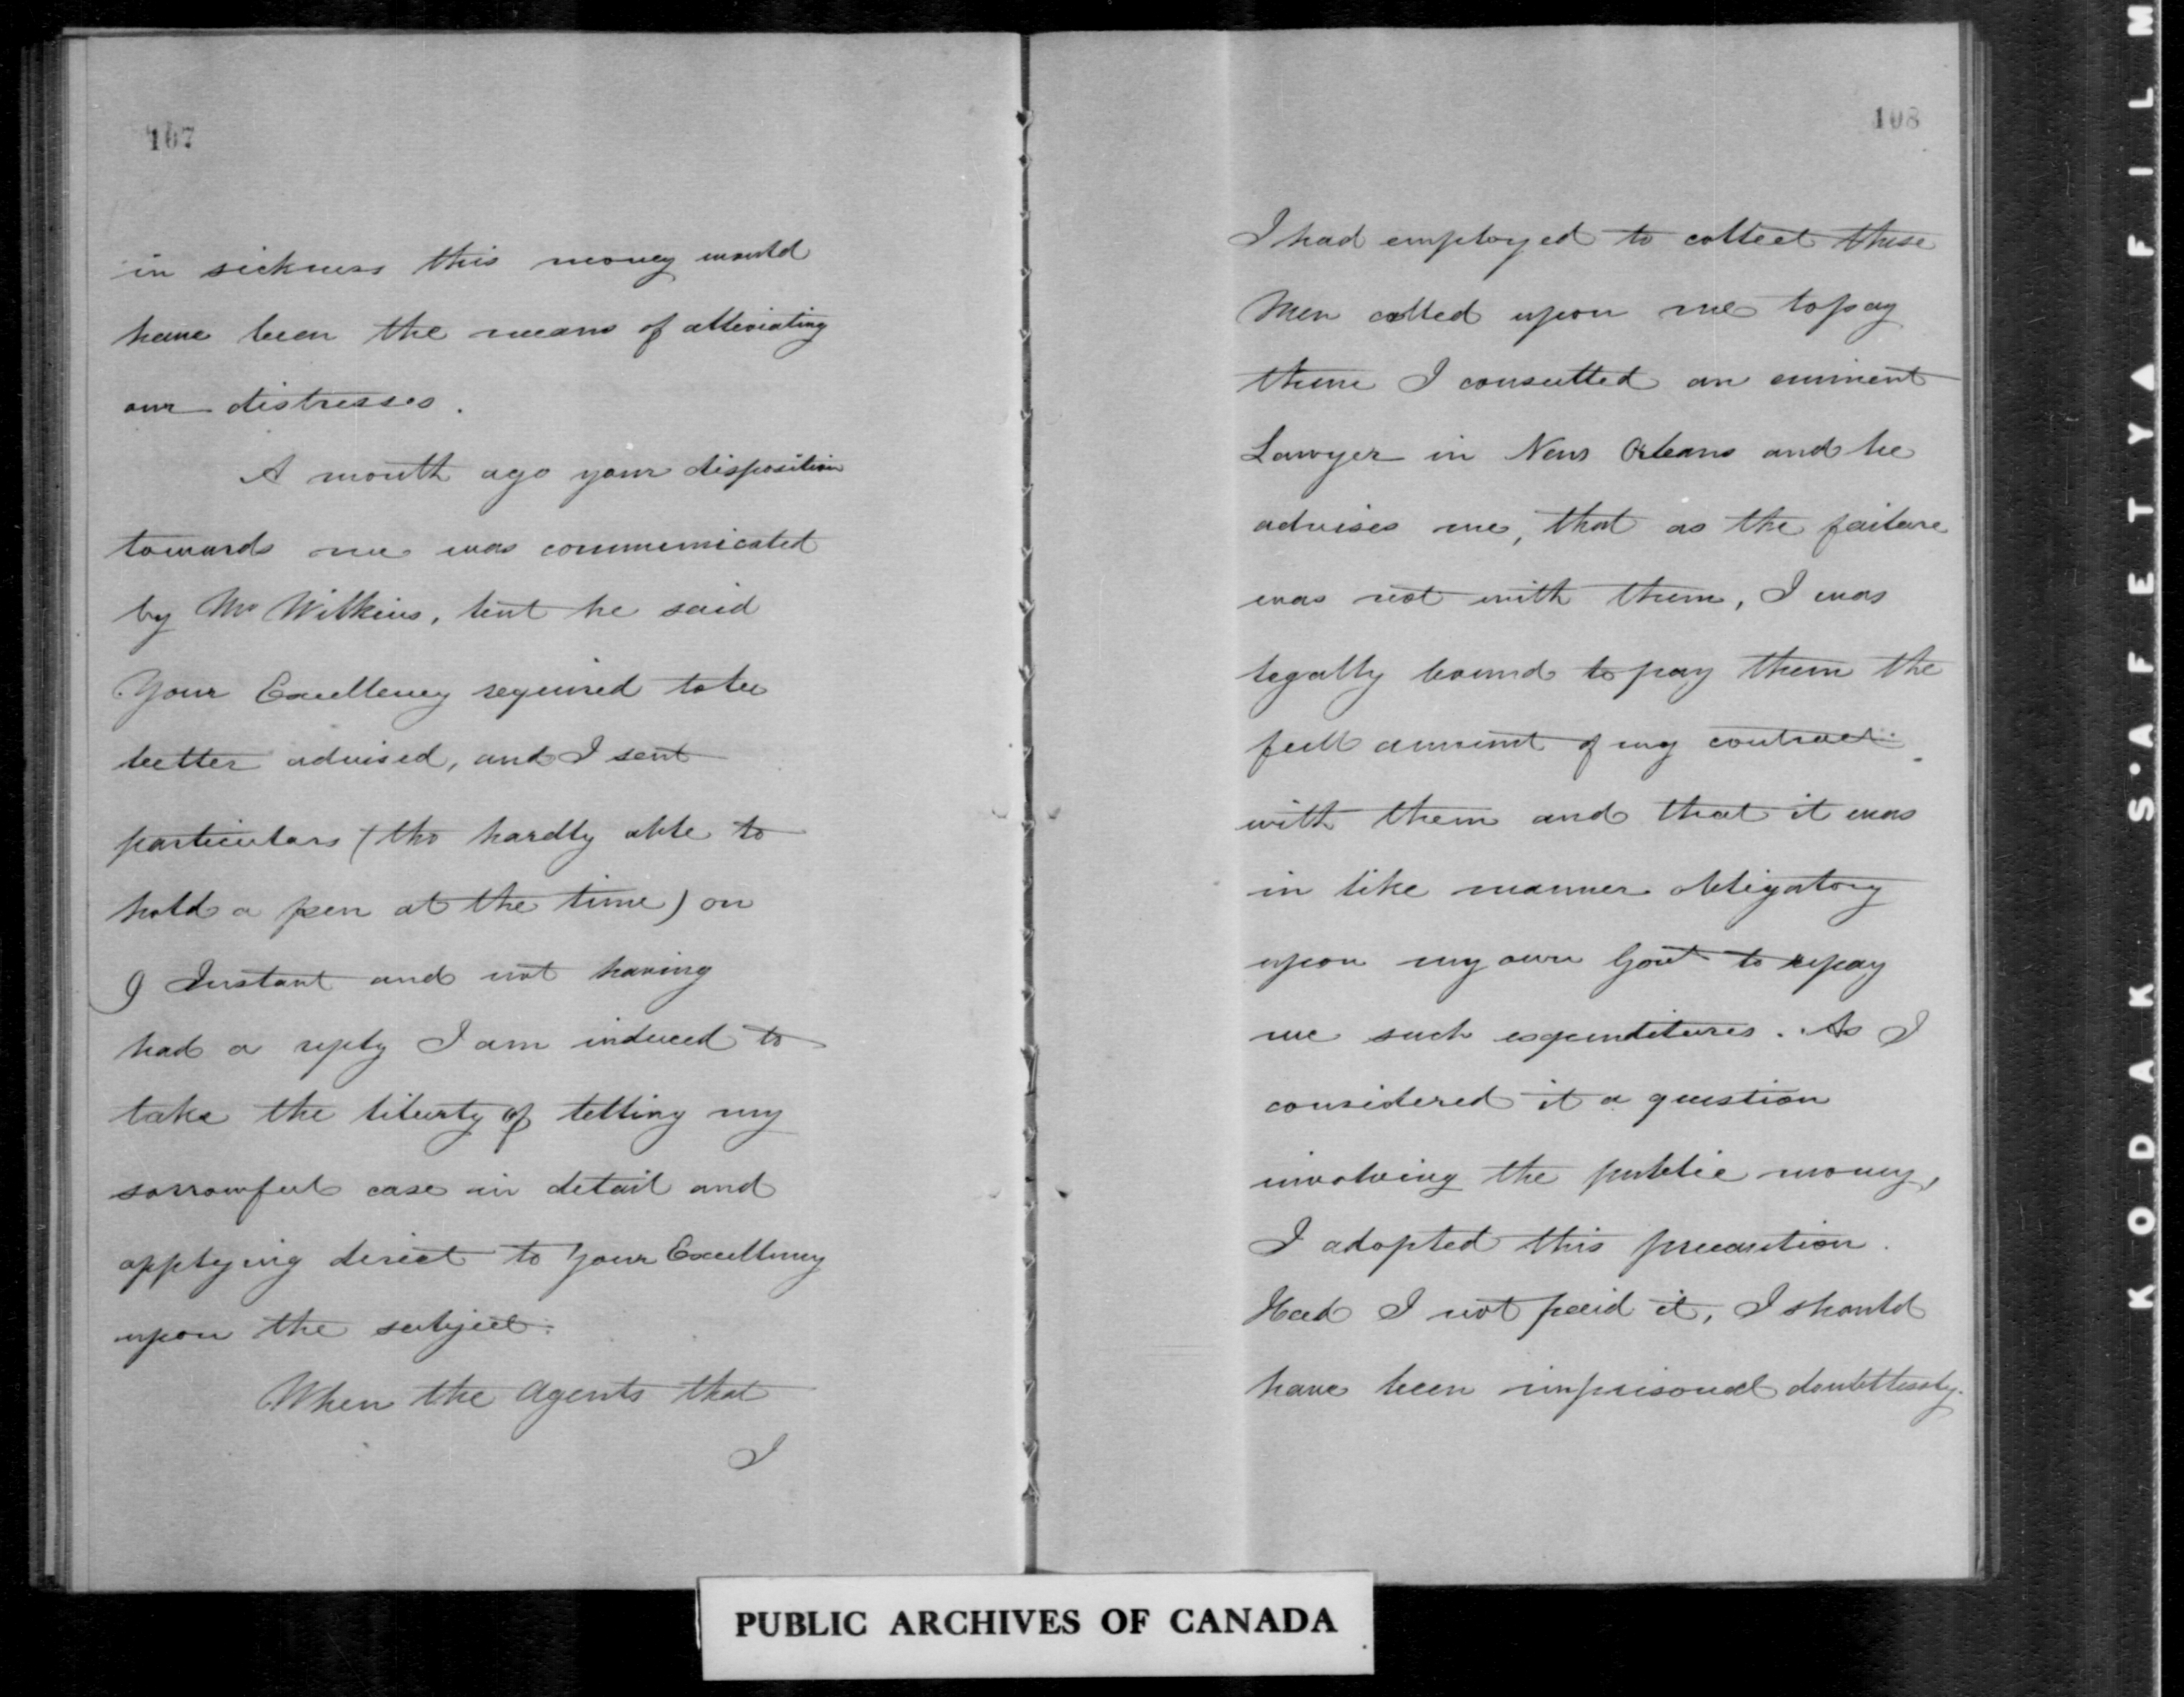 107
in sickness this money would
have been the means of alleviating
our distresses.
A month ago your disposition
towards me was communicated
by Mr Wilkins, but he said
Your Excellency required to be
better advised, and I sent
particulars (tho hardly able to
hold a pen at the time) on
9 Instant and not having
had a reply I am induced to
take the liberty of telling my
sorrowful case in detail and
applying direct to Your Excellency
upon the subject.
When the Agents that
I
108
I had employed to collect these
Men called upon me to pay
them I consulted an eminent
Lawyer in New Orleans and he
advises me, that as the failure
was not with them, I was
legally bound to pay them the
full amount of my contract.
with them and that it was
in like manner obligatory
upon my own Govt to repay
me such expenditures. As I
considered it a question
involving the public money,
I adopted this precaution.
Had I not paid it, I should
have been imprisoned doubtlessly.
PUBLIC ARCHIVES OF CANADA
KODAK S'AFETY▲FILM